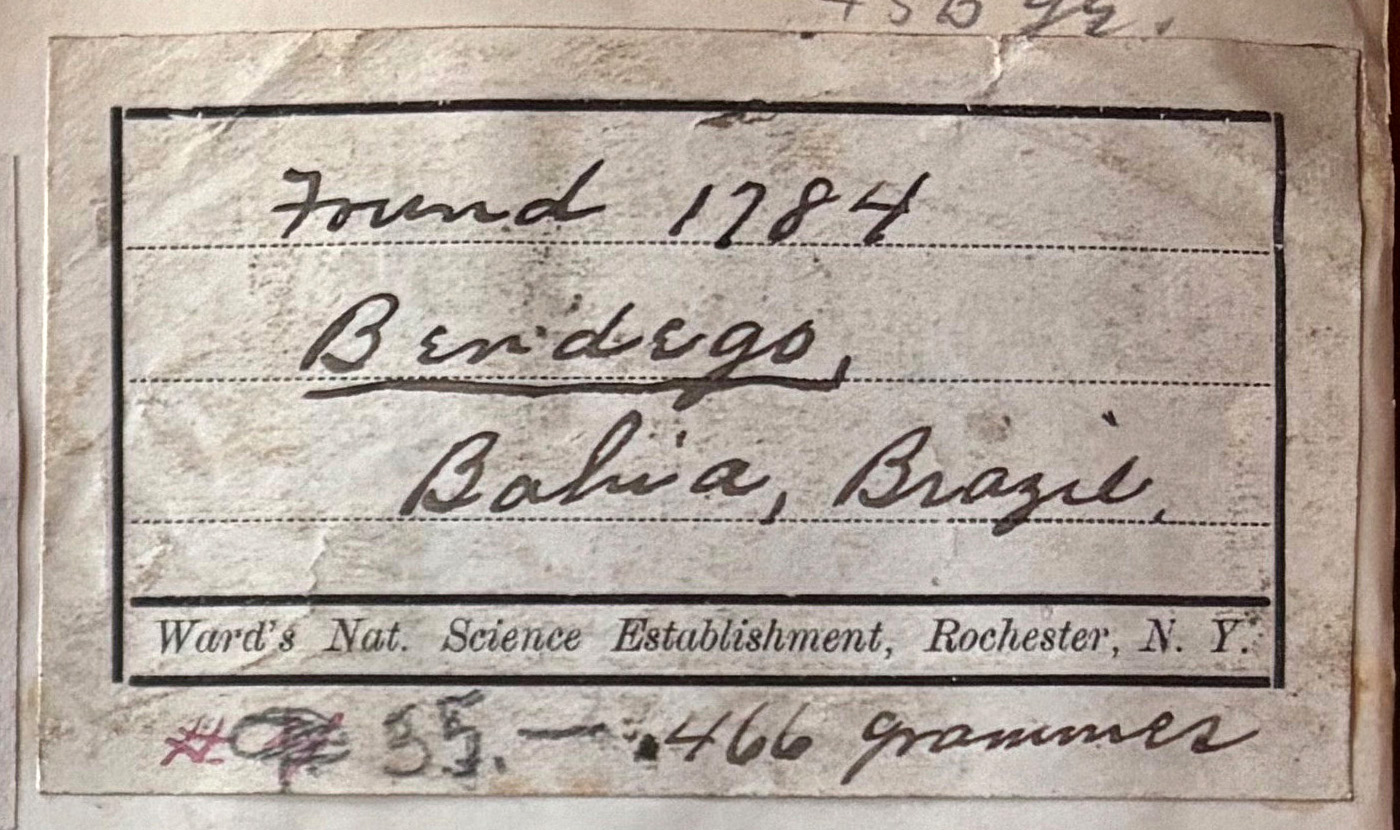 Found 1784
Bendego,
Bahia, Brazil,
Ward's Nat. Science Establishment, Rochester, N. Y.
35. — 466 grammes